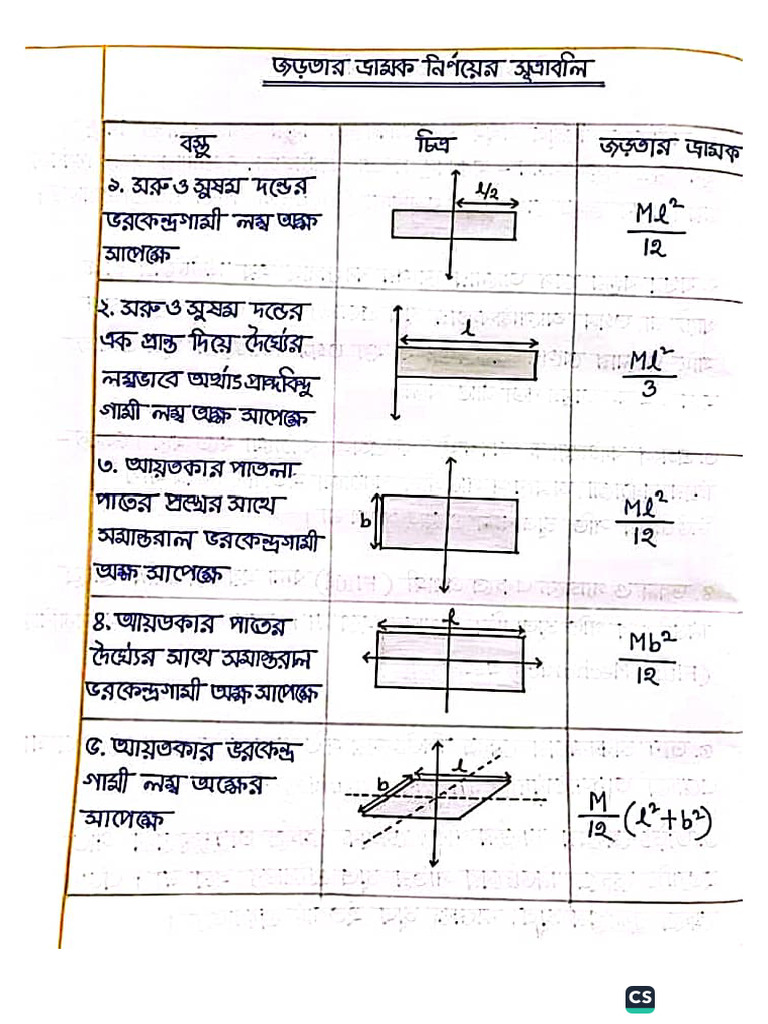 জড়তার ভ্রামক নির্ণয়ের সূত্রাবলি
বস্তু
চিত্র
জড়তার ভ্রামক
১. সরু ও সুষম দন্ডের
ভরকেন্দ্রগামী লম্ব অক্ষ
সাপেক্ষে
l/2
Ml²/12
২. সরু ও সুষম দন্ডের
এক প্রান্ত দিয়ে দৈর্ঘ্যের
লম্বভাবে অর্থাৎ প্রান্তবিন্দু
গামী লম্ব অক্ষ সাপেক্ষে
l
Ml²/3
৩. আয়তকার পাতলা
পাতের প্রস্থের সাথে
সমান্তরাল ভরকেন্দ্রগামী
অক্ষ সাপেক্ষে
b
Ml²/12
৪. আয়তকার পাতের
দৈর্ঘ্যের সাথে সমান্তরাল
ভরকেন্দ্রগামী অক্ষ সাপেক্ষে
l
Mb²/12
৫. আয়তকার ভরকেন্দ্র
গামী লম্ব অক্ষের
সাপেক্ষে
b l
M/12 (l²+b²)
CS